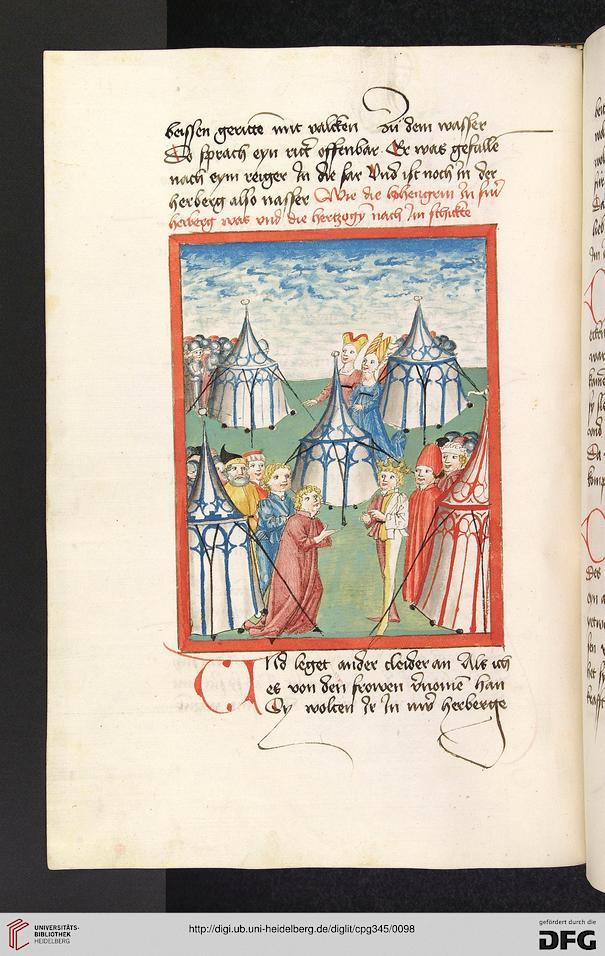 beissen geritte mit valcken Zu dem wasser
Do sprach eyn ritt offenbar Er was gefalle
nach eym reiger In die sar Und ist noch in der
herberg also nasser Wie die lohengrin In sin
herberg was vnd die hertzogÿ nach Im schickte
Und leget ander cleider an Als ich
es von den frowen vnome han
Sy wolten Ir In ured herberge
UNIVERSITÄTS-
BIBLIOTHEK
HEIDELBERG
http://digi.ub.uni-heidelberg.de/diglit/cpg345/0098
gefördert durch die
DFG